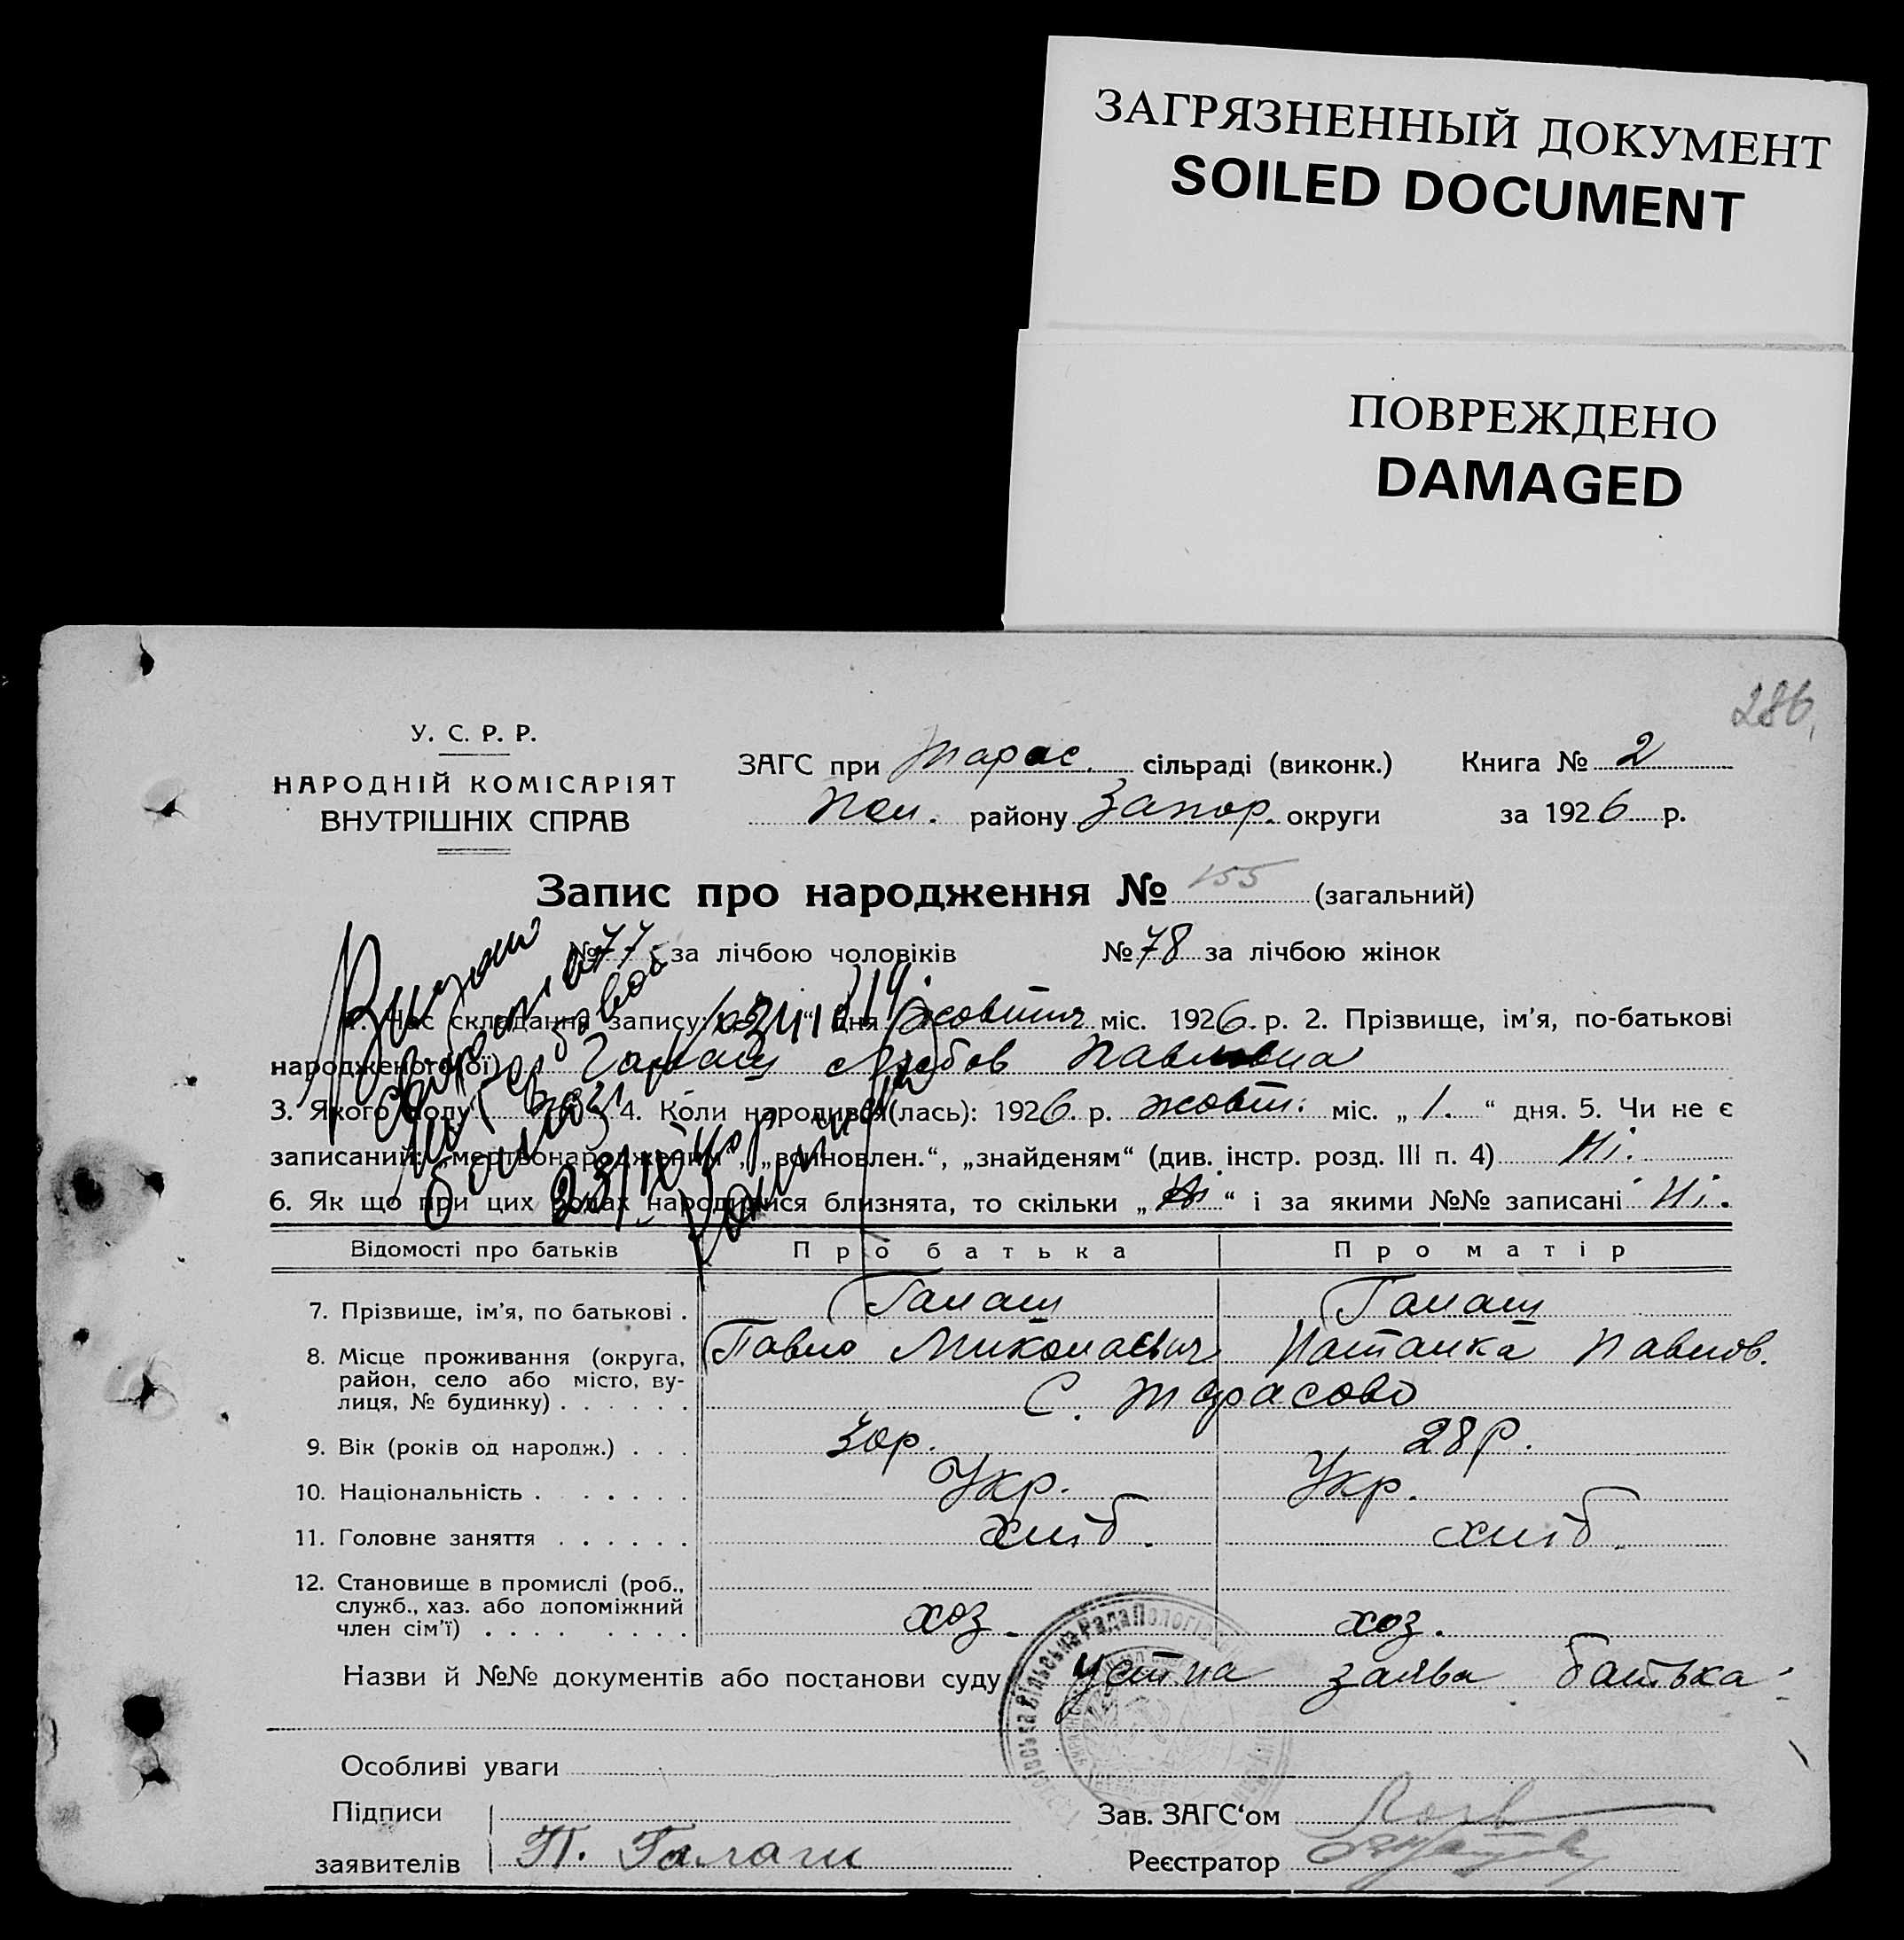 ЗАГРЯЗНЕННЫЙ ДОКУМЕНТ
SOILED DOCUMENT
ПОВРЕЖДЕНО
DAMAGED
286
У. С. Р. Р.
НАРОДНІЙ КОМІСАРІЯТ
ВНУТРІШНІХ СПРАВ
ЗАГС при Тарас. сільраді (виконк.)
Пол. району Запор. округи
Книга № 2
за 1926 р.
Запис про народження № 155 (загальний)
№ 77 за лічбою чоловіків № 78 за лічбою жінок
1. Час складання запису: " дня жовтня міс. 1926 р. 2. Прізвище, ім'я, по-батькові
народженого(ої) Галаш Любов Павловна
3. Якого полу 4. Коли народився(лась): 1926 р. жовт. міс. „ 1. " дня. 5. Чи не є
записаний: „мертвонародженим", „всиновлен.", „знайденям" (див. інстр. розд. III п. 4) Ні.
6. Як що при цих родах народилися близнята, то скільки „ Ні " і за якими №№ записані Ні.
23/IX
Відомості про батьків Про батька Про матір
7. Прізвище, ім'я, по батькові . Галаш Галаш
Павло Миколаєвич Наталка Павлов.
8. Місце проживання (округа,
район, село або місто, ву-
лиця, № будинку) . . . . . . С. Тарасово
9. Вік (років од народж.) . . . 30р. 28р.
10. Національність . . . . . . Укр. Укр.
11. Головне заняття . . . . . . хліб. хліб.
12. Становище в промислі (роб.,
служб., хаз. або допоміжний
член сім'ї) . . . . . . . . хоз. хоз.
Назви й №№ документів або постанови суду Устна заява батька
Особливі уваги
Підписи
заявителів П. Галаш
Зав. ЗАГС'ом
Реєстратор